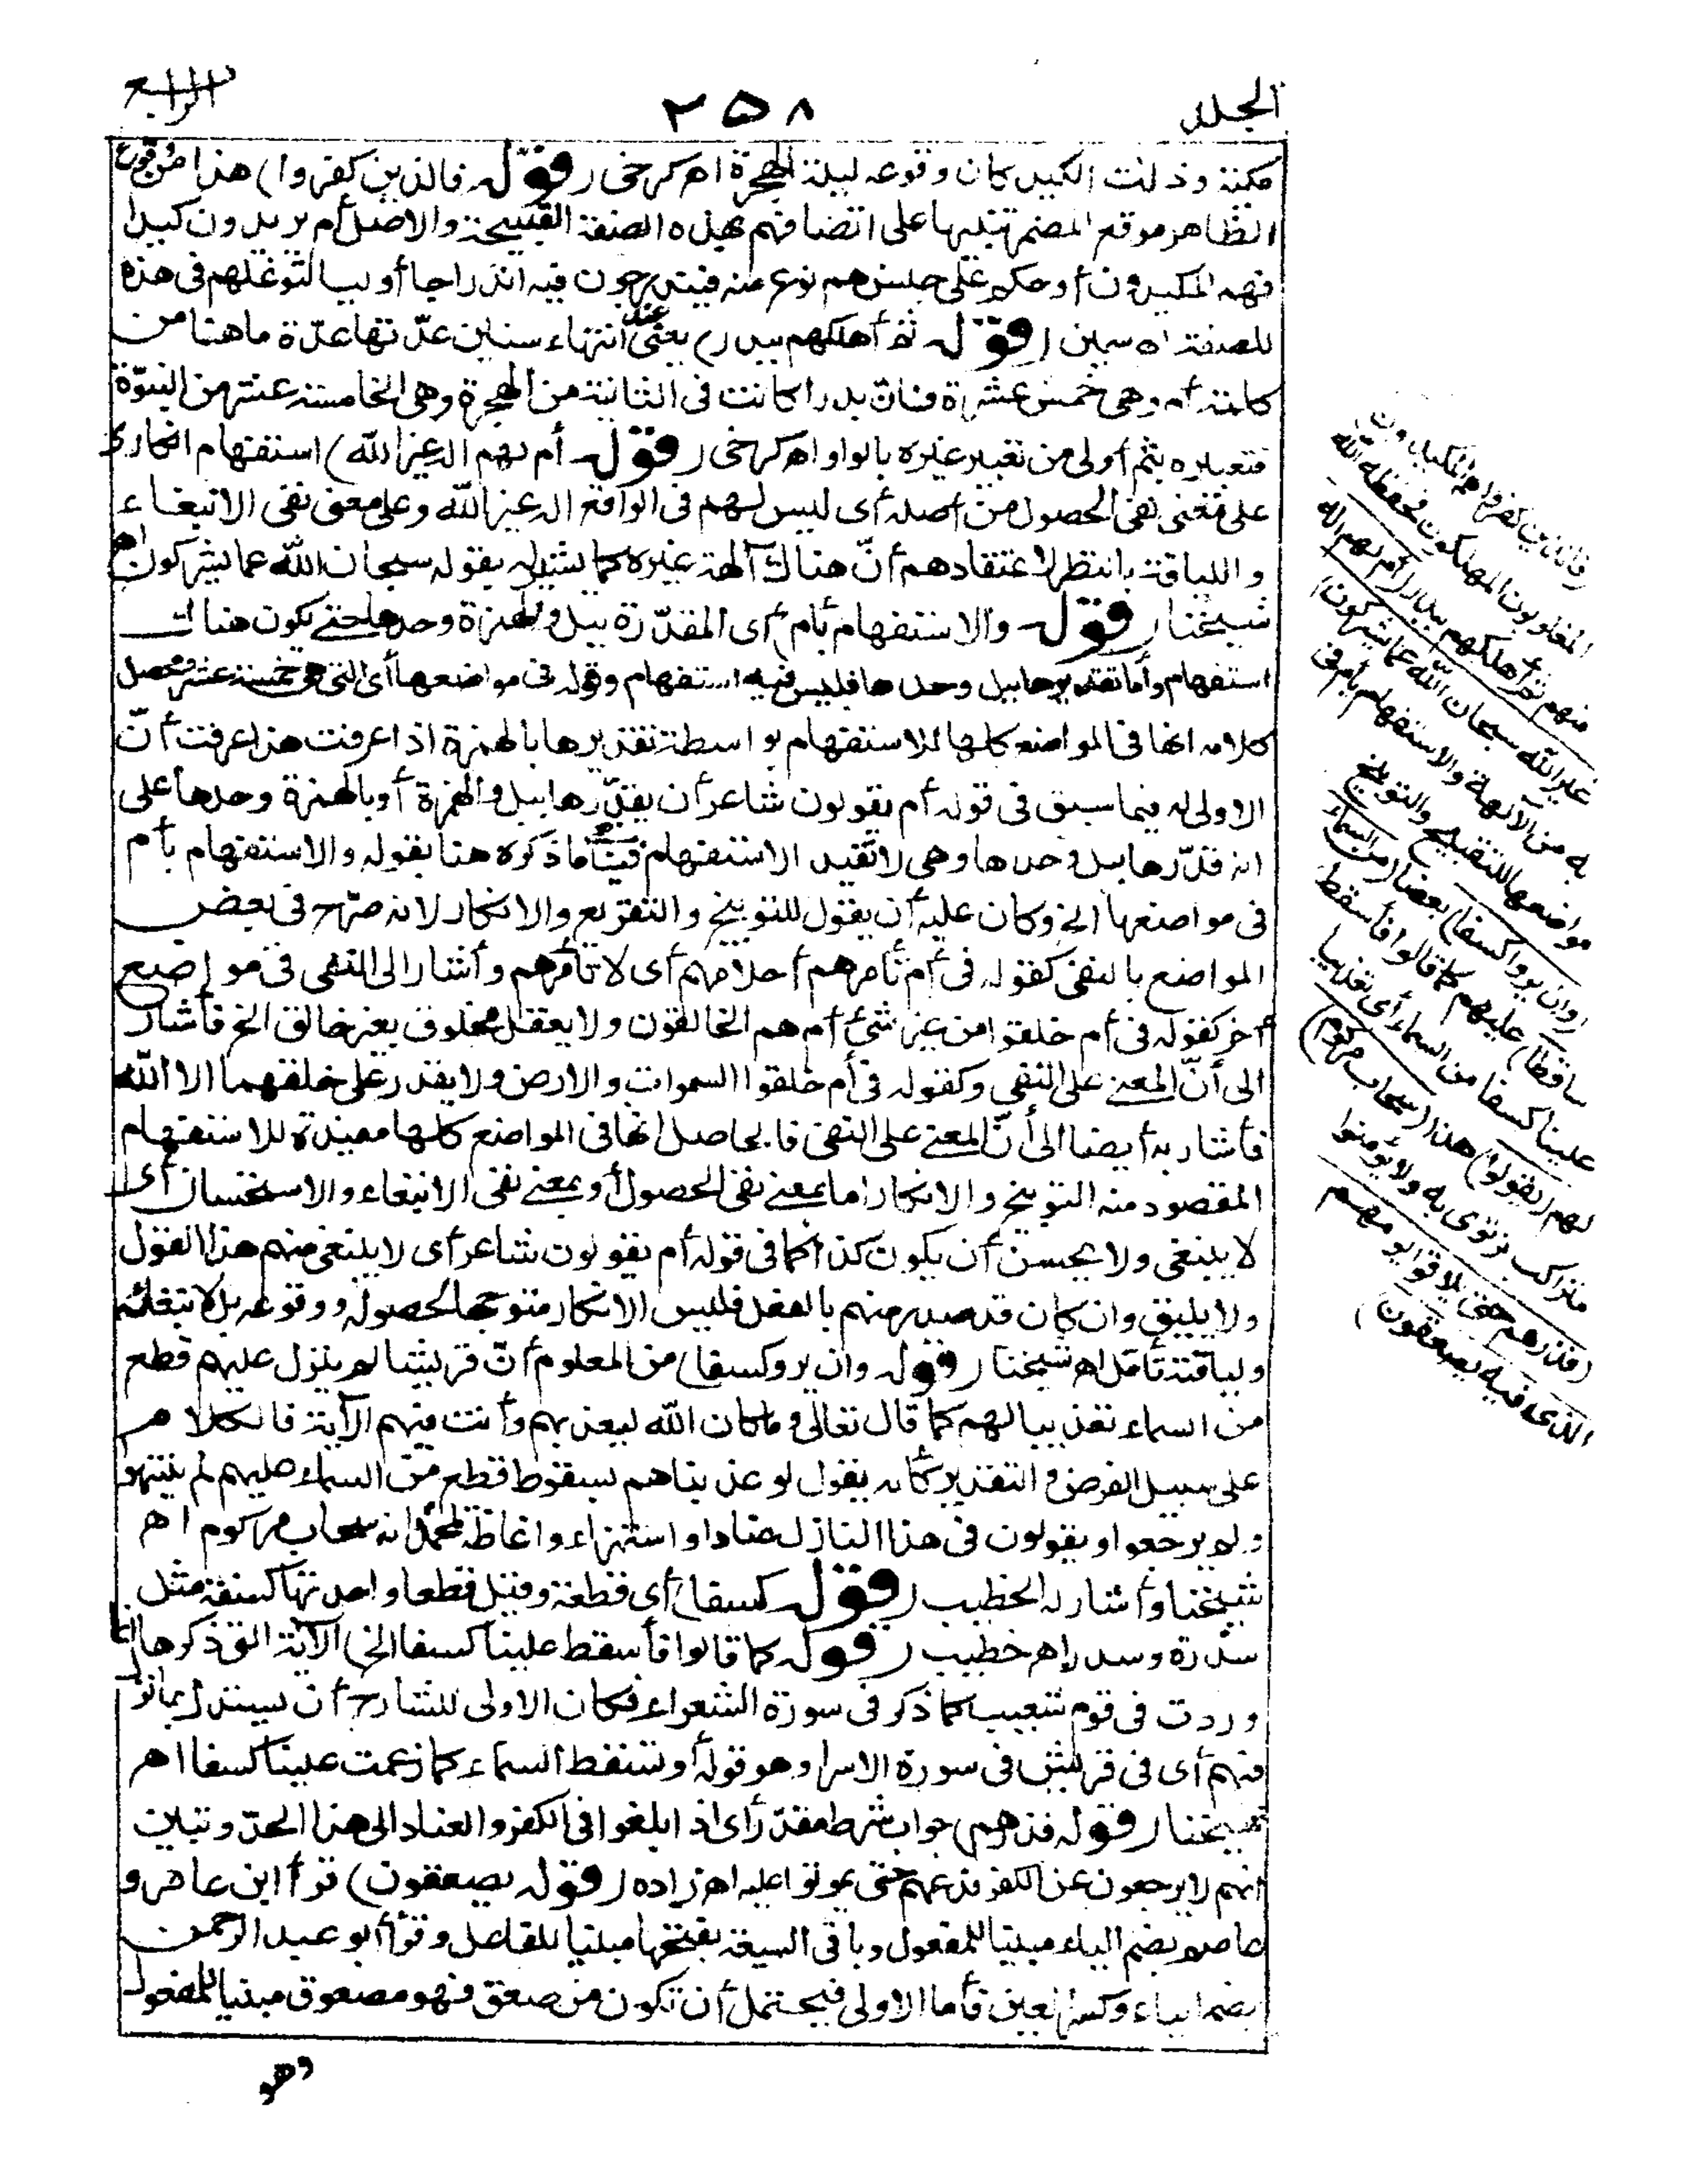 الجلد
٢٥٨
الرابع
مكة وذلك الكيد كان وقوعه ليلة الهجرة اه كرخى (قوله فالذين كفروا) هذا من وقوع
الظاهر موقع المضمر تنبيها على اتصافهم بهذه الصفة القبيحة والاصل أم يريدون كيدا
فهم المكيدون أو حكم على جنس هم نوع منه فيندرجون فيه اندراجا أوليا لتوغلهم فى هذه
الصفة اه سمين (قوله ثم أهلكهم ببدر) يعنى عند انتهاء سنين عدّتها عدّة ما هنا من
كلمة أم وهى خمس عشرة فانّ بدرا كانت فى الثانية من الهجرة وهى الخامسة عشر من النبوّة
فتعبيره بثم أولى من تعبير غيره بالواو اه كرخى (قوله أم لهم اله غير الله) استفهام انكارى
على معنى نفى الحصول من أصله أى ليس لهم فى الواقع اله غير الله وعلى معنى نفى الانبغاء
واللياقة بالنظر لاعتقادهم أنّ هناك آلهة غيره كما يشير له بقوله سبحان الله عما يشركون اه
شيخنا (قوله والاستفهام بأم) أى المقدّرة ببل والهمزة وحدها حتى يكون هناك
استفهام وأما تقديرها ببل وحدها فليس فيه استفهام وقوله فى مواضعها أى التى هى خمسة عشر ومحصل
كلامه انها فى المواضع كلها للاستفهام بواسطة تقديرها بالهمزة اذا عرفت هذا عرفت أنّ
الاولى له فيما سبق فى قوله أم يقولون شاعر أن يقدّرها ببل والهمزة أو بالهمزة وحدها على
انه قدّرها ببل وحدها وهى لا تفيد الاستفهام ما ذكره هنا بقوله والاستفهام بأم
فى مواضعها الخ وكان عليه أن يقول للتوبيخ والتقريع والانكار لانه صرّح فى بعض
المواضع بالنفى كقوله فى أم تأمرهم أحلامهم أى لا تأمرهم وأشار الى النفى فى مواضع
أخر كقوله فى أم خلقوا من غير شئ أم هم الخالقون ولا يعقل مخلوق بغير خالق الخ فأشار
الى أنّ المعنى على النفى وكقوله فى أم خلقوا السموات والارض ولا يقدر على خلقهما الا الله
فأشار به أيضا الى أنّ المعنى على النفى فالحاصل انها فى المواضع كلها مفيدة للاستفهام
المقصود منه التوبيخ والانكار اما بمعنى نفى الحصول أو بمعنى نفى الانبغاء والاستحسان أى
لا ينبغى ولا يحسن أن يكون كذا كما فى قوله أم يقولون شاعر أى لا ينبغى منهم هذا القول
ولا يليق وان كان قد صدر منهم بالفعل فليس الانكار متوجها لحصوله ووقوعه بل لانبغائه
ولياقته تأمّل اه شيخنا (قوله وان يروا كسفا) من المعلوم أنّ قريشا لم ينزل عليهم قطع
من السماء تعذيبا لهم كما قال تعالى وما كان الله ليعذبهم وأنت فيهم الآية فالكلام
على سبيل الفرض والتقدير كأنه يقول لو عذبناهم بسقوط قطع من السماء عليهم لم ينتهوا
ولم يرجعوا ويقولون فى هذا النازل عنادا واستهزاء واغاظة لمحمد انه سحاب مركوم اه
شيخنا وأشار له الخطيب (قوله كسفا) أى قطعة وقيل قطعا واحدتها كسفة مثل
سدرة وسدر اه خطيب (قوله كما قالوا فأسقط علينا كسفا الخ) الآية التى ذكرها انما
وردت فى قوم شعيب كما ذكر فى سورة الشعراء فكان الاولى للشارح أن يستدل بما نزل
فيهم أى فى قريش فى سورة الاسرا وهو قوله أو تسقط السماء كما زعمت علينا كسفا اه
شيخنا (قوله فذرهم) جواب شرط مقدّر أى اذا بلغوا فى الكفر والعناد الى هذا الحدّ وتبين
انهم لا يرجعون عن الكفر فدعهم حتى يموتوا عليه اه زاده (قوله يصعقون) قرأ ابن عامر و
عاصم بضم الياء مبنيا للمفعول وباقى السبعة بفتحها مبنيا للفاعل وقرأ أبو عبد الرحمن
بضم الياء وكسر العين فأما الاولى فيحتمل أن تكون من صعق فهو مصعوق مبنيا للمفعول
وهو
(فالذين كفروا هم المكيدون)
المغلوبون المهلكون فحفظه الله
منهم ثم أهلكهم ببدر (أم لهم اله
غير الله سبحان الله عما يشركون)
به من الآلهة والاستفهام بأم فى
مواضعها للتقبيح والتوبيخ
(وان يروا كسفا) بعضا (من السماء
ساقطا) عليهم كما قالوا فأسقط
علينا كسفا من السماء أى تعذيبا
لهم (يقولوا) هذا (سحاب مركوم)
متراكب نرتوى به ولا يؤمنوا
(فذرهم حتى يلاقوا يومهم
الذى فيه يصعقون)